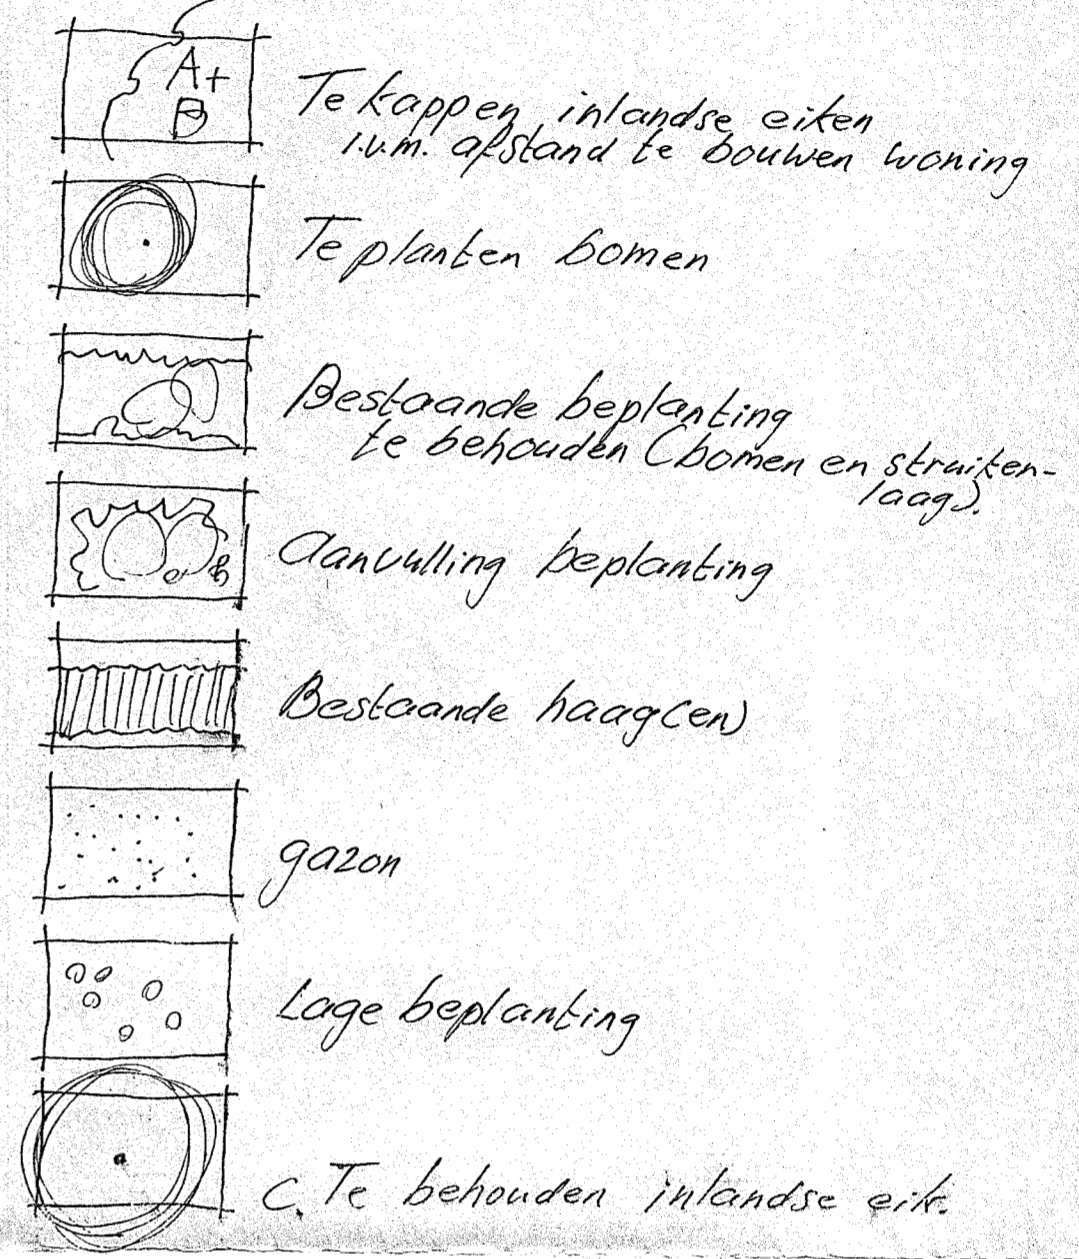 A+
B
Te kappen inlandse eiken
i.v.m. afstand te bouwen woning
Te planten bomen
Bestaande beplanting
te behouden (bomen en struiken-
laag).
Aanvulling beplanting
Bestaande haag(en)
gazon
Lage beplanting
C. Te behouden inlandse eik.